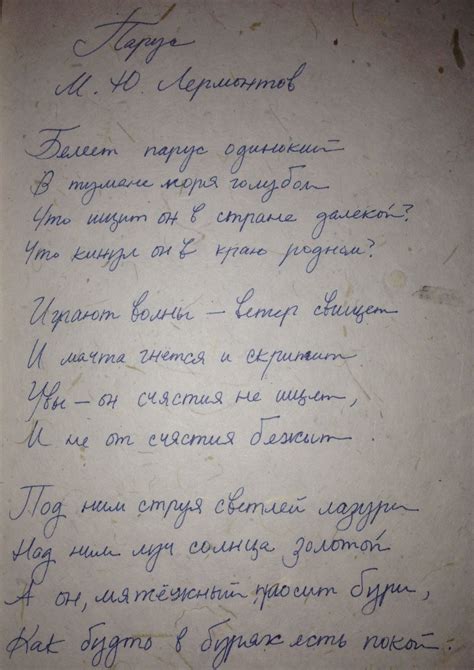 Парус
М. Ю. Лермонтов
Белеет парус одинокий
В тумане моря голубом
Что ищит он в стране далекой?
Что кинул он в краю родном?
Играют волны – ветер свищет
И мачта гнётся и скрипит
Увы – он счастия не ищет,
И не от счастия бежит.
Под ним струя светлей лазури
Над ним луч солнца золотой
А он, мятежный, просит бури,
Как будто в бурях есть покой.